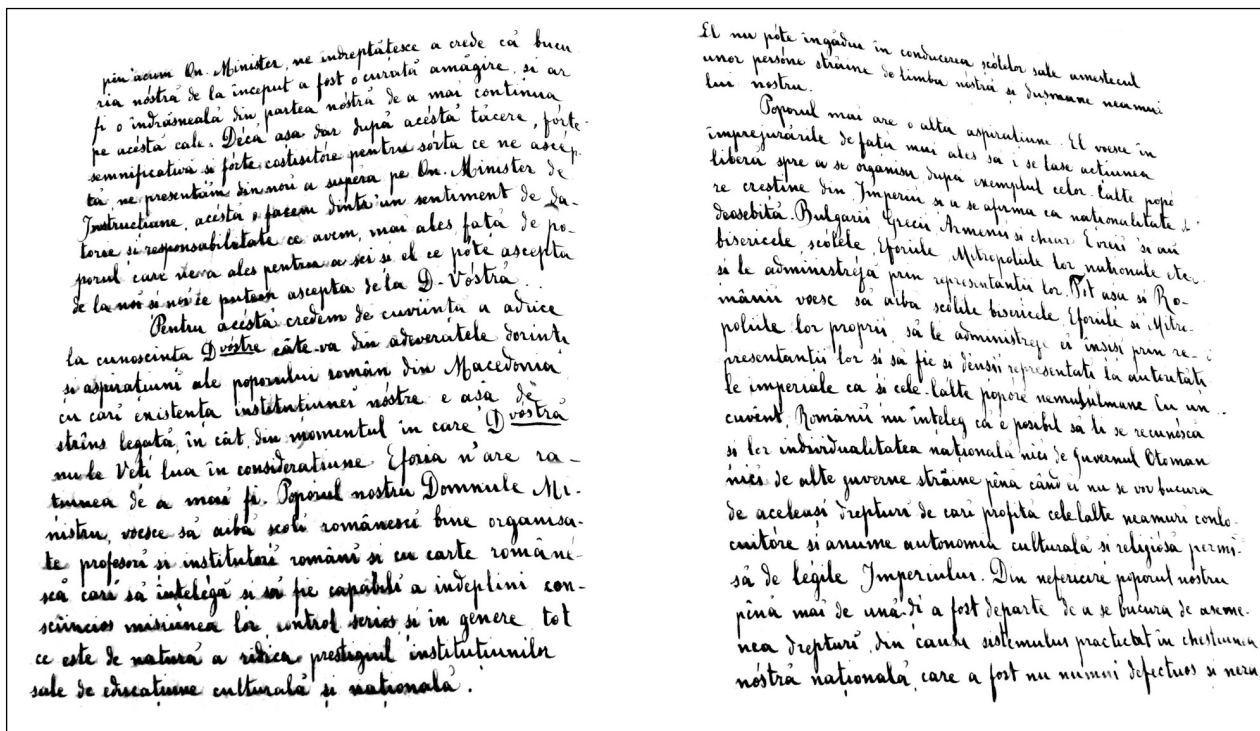 pin'acum On. Minister, ne indreptătesce a crede că bucu
ria nóstră de la inceput a fost o curată amăgire, si ar
fi o indrăsneală din partea nóstră de a mai continua
pe acéstă cale. Décă asa dar după acéstă tăcere, fórte
semnificativă si fórte costisitóre pentru sórta ce ne ascép-
tă, ne presentăm din nou a supera pe On. Minister de
Instructiune, acésta o facem dintr'un sentiment de da-
torie si responsabilitate ce avem, mai ales fată de po-
porul care ne-a ales pentru a sci si el ce póte ascepta
de la noi si noi ce putem ascepta de la D-Vóstră.
Pentru acésta credem de cuviintă a aduce
la cunoscinta Dvóstre câte-va din adeveratele dorinti
si aspiratiuni ale poporului român din Macedonia
cu cari existenta institutiunei nóstre e asă de
strins legată, in cât, din momentul in care Dvóstră
nu le Veti lua in consideratiune Eforia n'are ra-
tiunea de a mai fi. Poporul nostru Domnule Mi-
nistru, voesce să aibă scoli românesci bine organisa-
te profesori si institutori români si cu carte române-
scă cari să intelégă si să fie capabili a indeplini con-
sciincios misiunea lor control serios si in genere tot
ce este de natură a ridica prestigiul instituțiunilor
sale de educațiune culturală și națională.
El nu póte ingădui in conducerea scólelor sale amestecul
unor persóne străine de limba nóstră si dusmane neamu
lui nostru.
Poporul mai are o altă aspiratiune. El voesce in
imprejurările de fată mai ales să i se lase actiunea
liberă spre a se organisa după exemplul celor-l'alte popó
re crestine din Imperiu si a se afirma ca nationalitate
deosebită. Bulgarii Grecii Armenii si chiar Evreii isi au
bisericele scólele, Eforiile, Mitropoliile lor nationale etc.
si le administréja prin representantii lor. Tot asa si Ro-
mânii voesc să aibă scólele bisericele, Eforiile si Mitro-
poliile lor proprii să le administreje ei insisi prin re-
presentantii lor si să fie si densii representati la autorităti
le imperiale ca si cele-l'alte popóre nemusulmane Cu un
cuvênt, Românii nu inteleg că e posibil să li se recunóscă
si lor individualitatea natională nici de Guvernul Otoman
nici de alte guverne străine pênă când ei nu se vor bucura
de aceleasi drepturi de cari profită celelalte neamuri conlo-
cuitóre si anume autonomia culturală si religiósă permi-
să de legile Imperiului. Din nefericire poporul nostru
pênă mai de ună-di a fost departe de a se bucura de aseme-
nea drepturi din causa sistemului practicat in chestiunea
nóstră națională, care a fost nu numai defectuos si neru